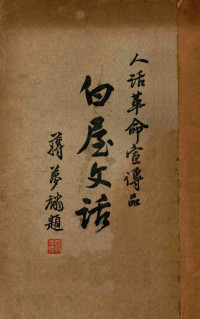 人話革命宣傳品
白屋文話
蔣夢麟題